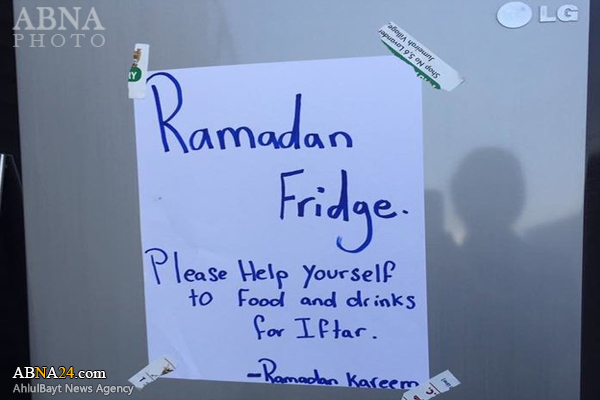 ABNA
PHOTO
LG
Shop No 5,6 Lavender
Jumeirah Village,
Ramadan
Fridge.
Please Help Yourself
to Food and drinks
for Iftar.
-Ramadan Kareem
ABNA24.com
AhlulBayt News Agency